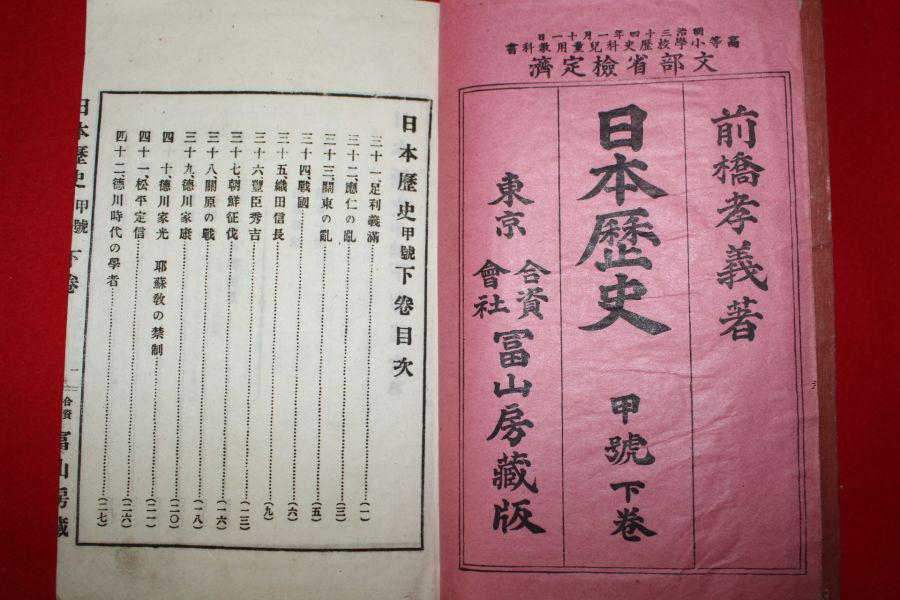 明治三十四年一月十一日
高等小學校歷史科兒童用教科書
文部省檢定濟
前橋孝義著
日本歷史 甲號下卷
東京 合資會社 冨山房藏版
日本歷史甲號下卷目次
三十一、足利義滿…(一)
三十二、應仁の亂…(三)
三十三、關東の亂…(五)
三十四、戰國…(六)
三十五、織田信長…(九)
三十六、豐臣秀吉…(一三)
三十七、朝鮮征伐…(一六)
三十八、關原の戰…(一八)
三十九、德川家康…(二〇)
四十、德川家光 耶蘇敎の禁制…(二一)
四十一、松平定信…(二六)
四十二、德川時代の學者…(二七)
日本歷史 甲號 下卷 一 合資 冨山房藏